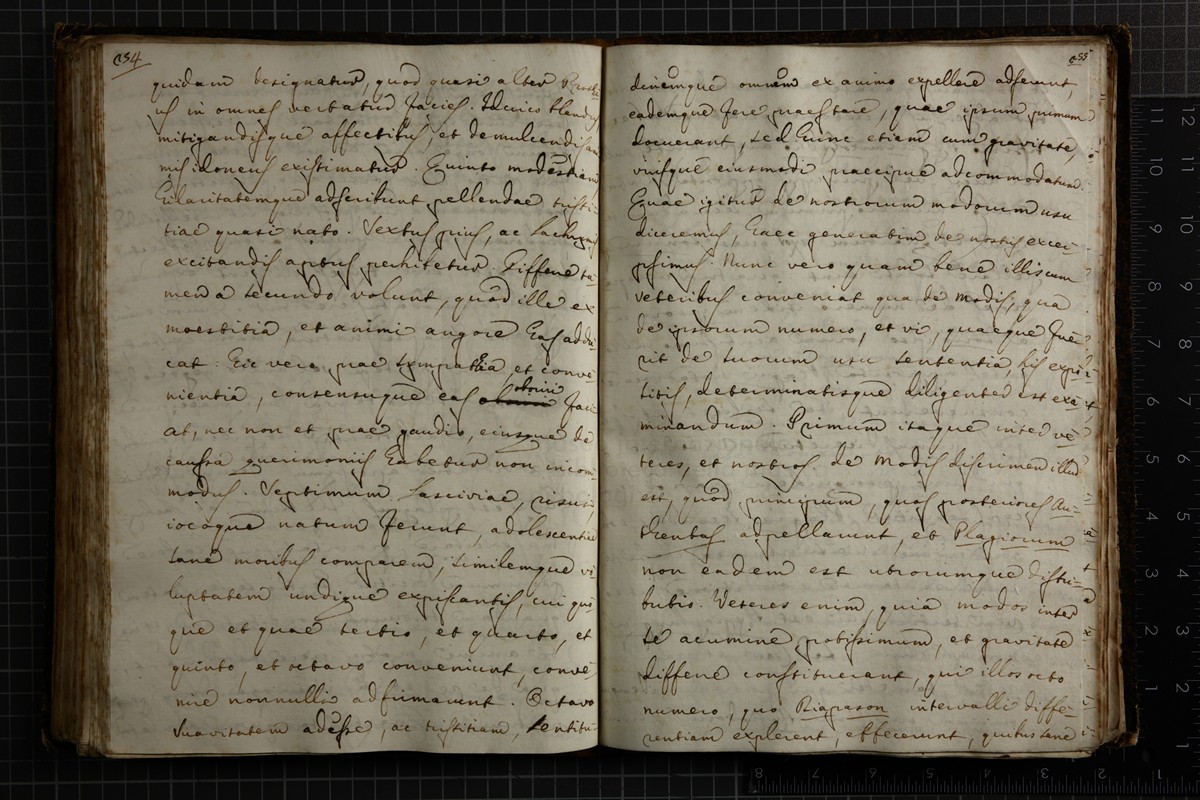 quidam designatur, quod quasi alter Prothe-
us in omnes vertatur facies. Idcirco blandis
mitigandisque affectibus, et demulcendis
mis idoneus existimatur. Quinto modestiam
hilaritatemque adscribunt pellendae tristi-
tiae quasi nato. Sextus pius, ac lachrymis
excitandis aptus perhibetur. Differre ta-
men a secundo volunt, quod ille ex
moestitia, et animi angore eas addu-
cat: hic vero prae sympathia, et conve-
nientia, consensuque eas oboriri faci-
at, nec non et prae gaudio, eiusque de
caussa querimoniis habetur non incom-
modus. Septimum lasciviae, risui,
iocoque natum ferunt, adolescentiae
sane moribus comparem, similemque vo-
luptatem undique expiscantis, cui quo-
que et quae tertio, et quarto, et
quinto, et octavo conveniunt, conve-
nire nonnulli adfirmarunt. Octavo
suavitatem adesse, ac tristitiam, sentitu-
dinemque omnem ex animo expellere adserunt,
eademque fere praestare, quae ipsum primum
docuerant, sed hunc etiam cum gravitate,
virisque eiusmodi praecipue adcommodatum.
Quae igitur de nostrorum modorum usu
diceremus, haec generatim de nostris excer-
psimus. Nunc vero quam bene illis cum
veteribus conveniat qua de modis, qua
de ipsorum numero, et vi, quaeque fue-
rit de suorum usu sententia his expo-
sitis, determinatisque diligenter est exa-
minandum. Primum itaque inter ve-
teres, et nostros de Modis discrimen illud
est, quod principum, quos posteriores Au-
thentas adpellarunt, et Plagiorum
non eadem est utrorumque distri-
butio. Veteres enim, quia modos inter
se acumine potissimum, et gravitate
differre constituerant, qui illos octo
numero, quo Diapason intervalli diffe-
rentiam explerent, effecerunt, quibus sane